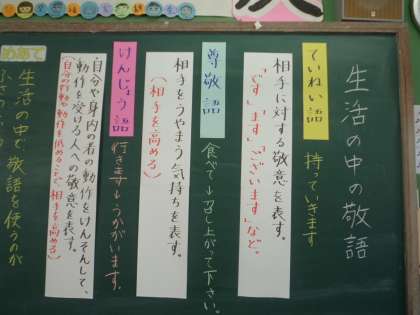 生活の中の敬語
ていねい語
持っていきます
相手に対する敬意を表す。
「です」「ます」「ございます」など。
尊敬語
食べて↓召し上がって下さい。
相手をうやまう気持ちを表す。
（相手を高める）
けんじょう語
行きます↓うかがいます。
自分や身内の者の動作をけんそんして、
動作を受ける人への敬意を表す。
（自分の行動や動作を低めることで、相手を高める）
めあて
生活の中で敬語を使うのが